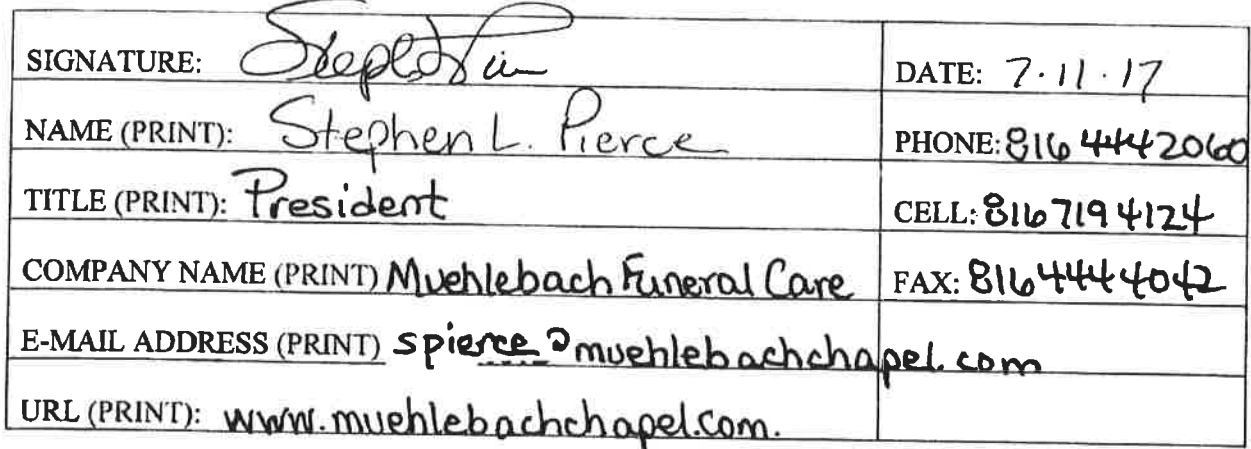 SIGNATURE: DATE: 7.11.17
NAME (PRINT): Stephen L. Pierce PHONE: 816 444 2060
TITLE (PRINT): President CELL: 816 719 4124
COMPANY NAME (PRINT) Muehlebach Funeral Care FAX: 816 444 4042
E-MAIL ADDRESS (PRINT) spierce@muehlebachchapel.com
URL (PRINT): www.muehlebachchapel.com.